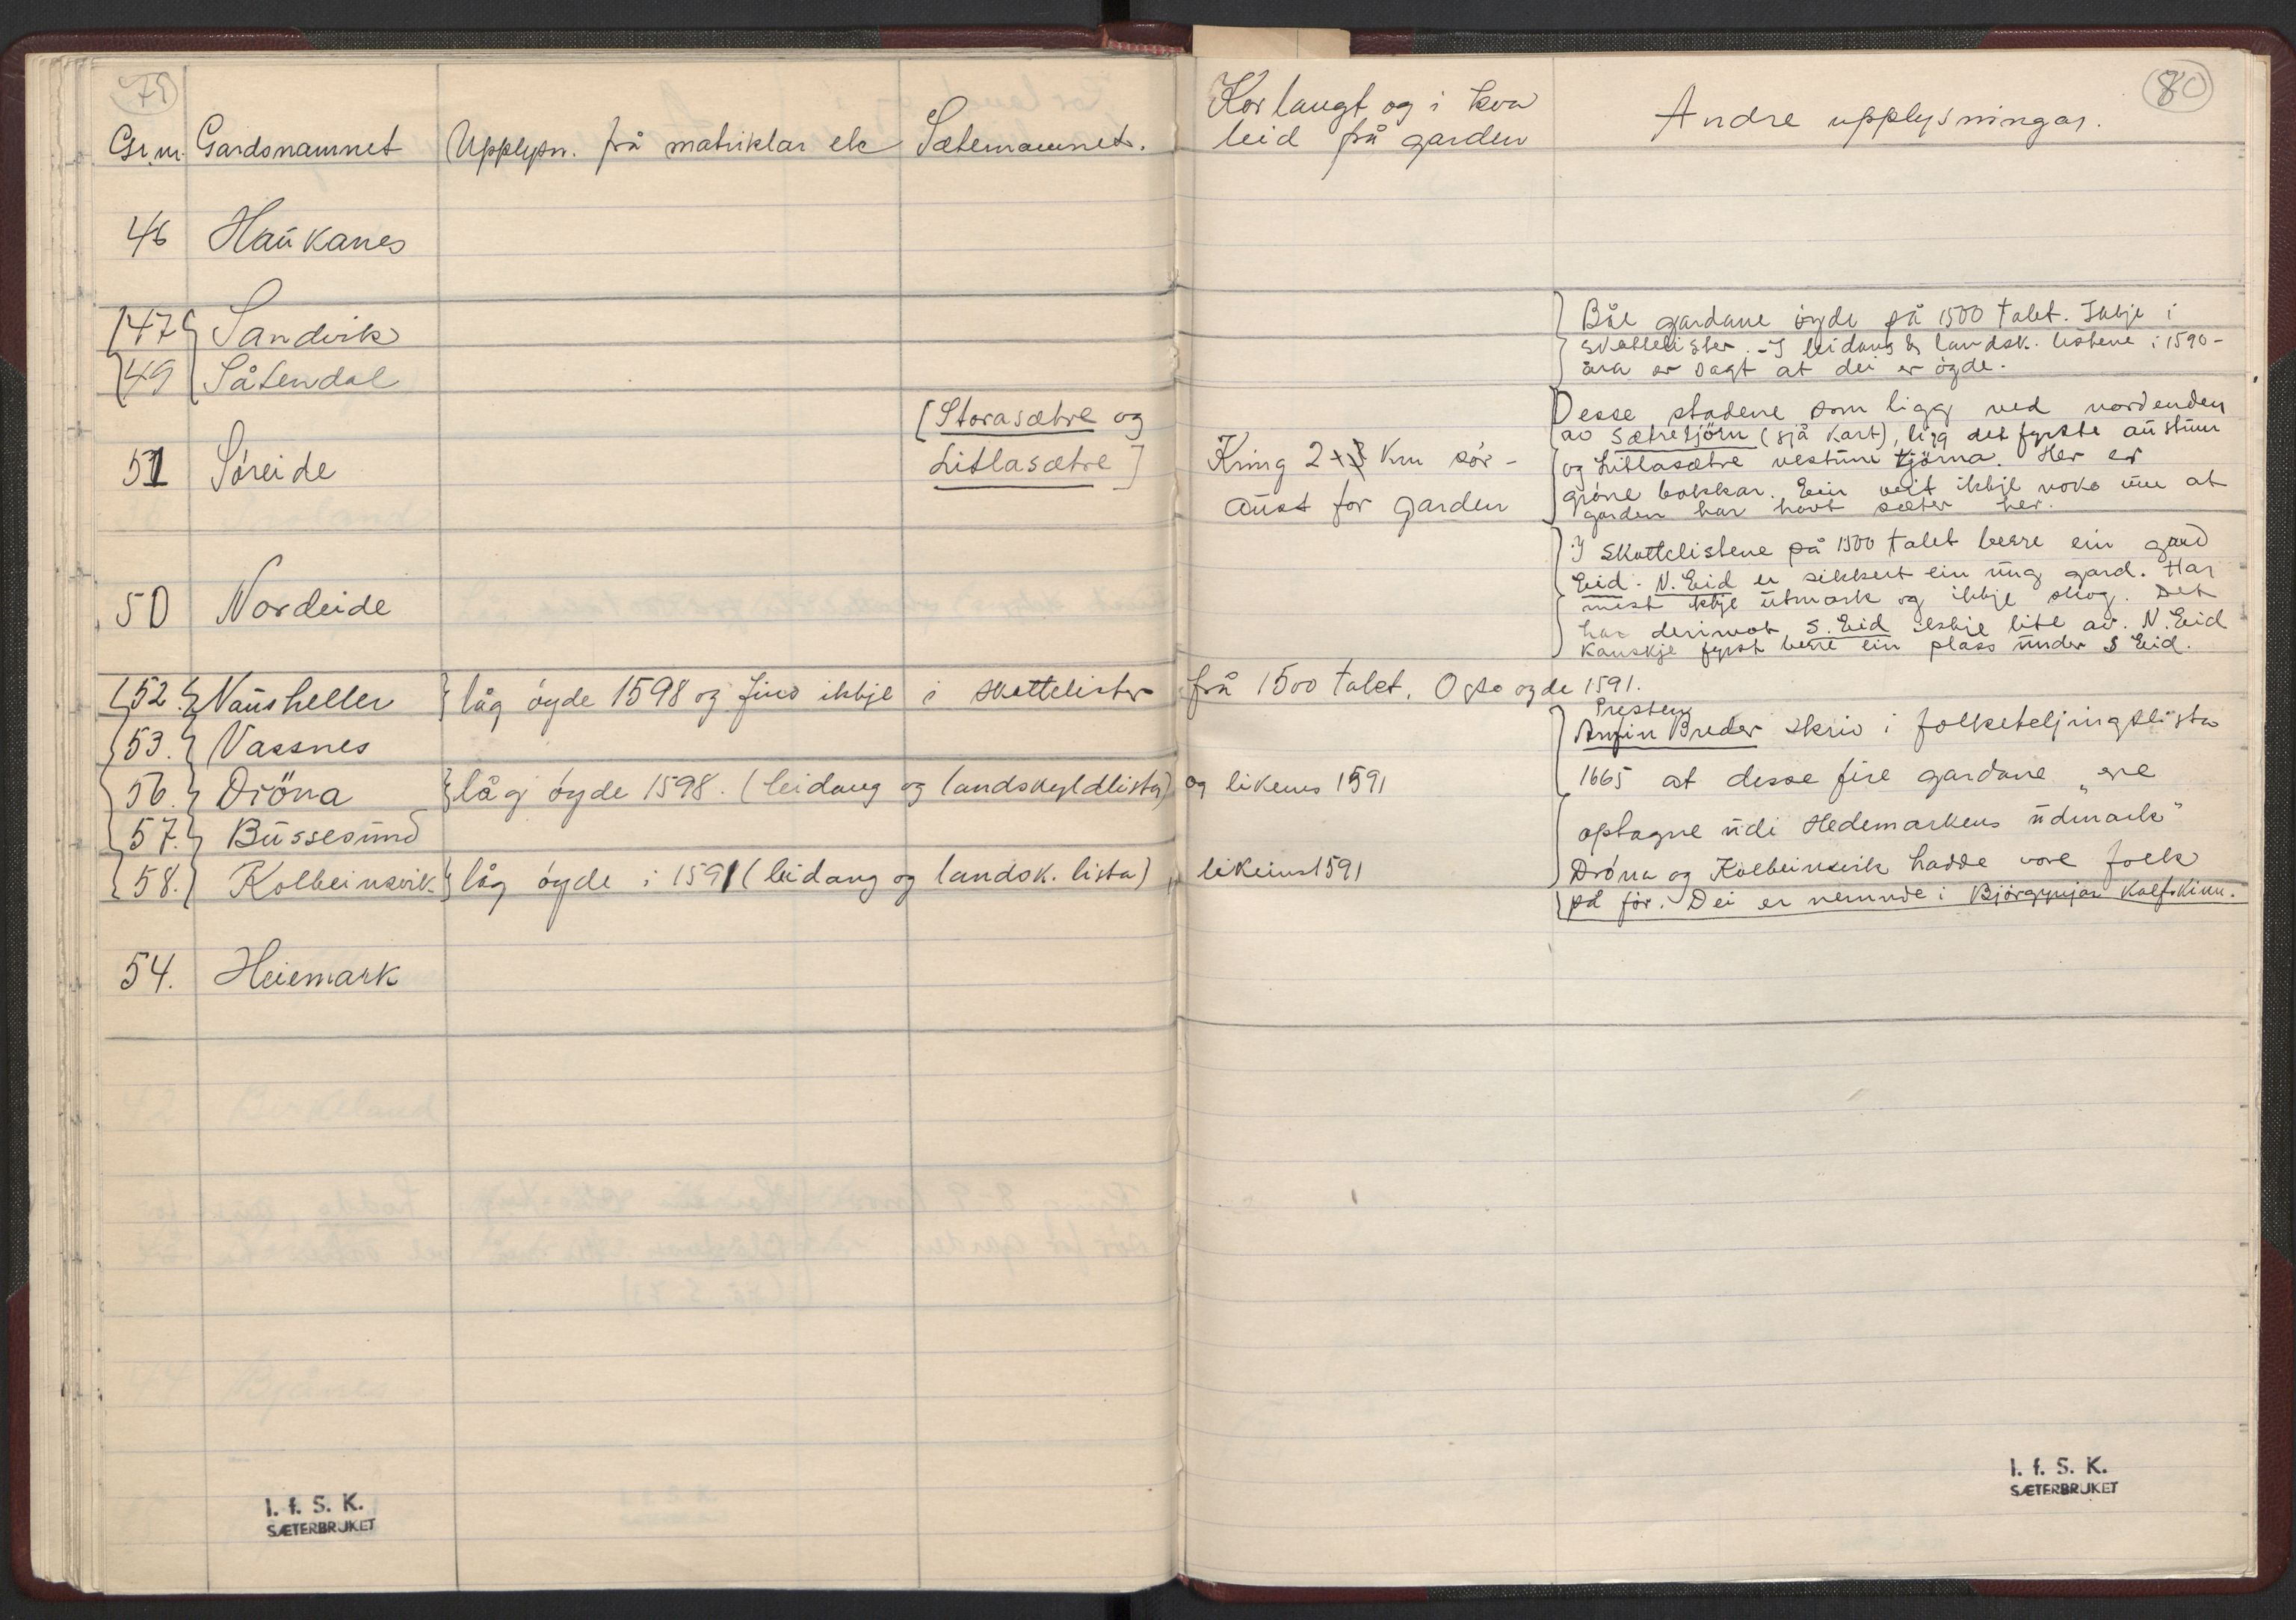 79
Gr.nr. Gardsnamnet Upplysn. frå matriklar etc Sæternamnet.
46 Haukanes
47 Sandvik
49 Såtendal
[Storasætre og
51 Søreide Litlasætre]
50 Nordeide
52. Nausheller låg öyde 1598 og fins ikkje i skattelister
53. Vassnes
56. Dröna låg öyde 1598. (leidang og landskyldlista)
57. Bussesund
58. Kolbeinsvik låg öyde i 1591 (leidang og landsk. lista),
54. Heiemark
I. f. S. K.
SÆTERBRUKET
80
Kor langt og i kva
leid frå garden
Andre upplysningar.
Båe gardane öyde på 1500 talet. Ikkje i
skattelister. - I leidang & landsk. listene i 1590-
åra er sagt at dei er öyde.
Kring 2 km sör-
aust for garden
Desse stadene som ligg ved nordenden
av Sætretjörn (sjå kart), ligg det fyrste austum
og Litlasætre vestum tjörna. Her er
gröne bakkar. Ein veit ikkje noko um at
garden har havt sæter her.
I skattelistene på 1500 talet berre ein gard
Eid. N. Eid er sikkert ein ung gard. Har
mest ikkje utmark og ikkje skog. Det
har derimot S. Eid ikkje lite av. N. Eid
kanskje fyrst berre ein plass under S Eid.
frå 1500 talet. Også øyde 1591.
Presten
Arnfin Breder skriv i folketeljingslista
1665 at desse fire gardane "ere
optagne udi Hedemarkens udmark"
Dröna og Kolbeinsvik hadde vore folk
på för. Dei er nemnde i Björgynjar Kalfskinn.
og likeins 1591
likeins 1591
I. f. S. K.
SÆTERBRUKET